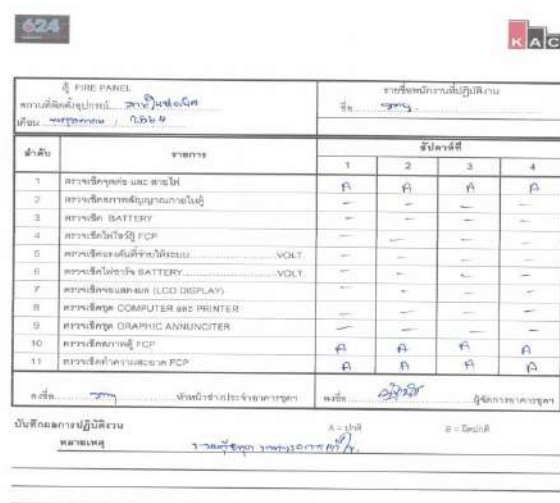 624
KAC
ตู้ FIRE PANEL
รายชื่อพนักงานที่ปฏิบัติงาน
สถานที่ติดตั้งอุปกรณ์
ชื่อ
เดือน พฤษภาคม / 2564
ลำดับ รายการ สัปดาห์ที่
1 2 3 4
1 ตรวจเช็คจุดต่อ และ สายไฟ A A A A
2 ตรวจเช็คสภาพสัญญาณภายในตู้ - - - -
3 ตรวจเช็ค BATTERY - - - -
4 ตรวจเช็คไฟโชว์ตู้ FCP - - - -
5 ตรวจเช็คแรงดันที่จ่ายให้ระบบ VOLT. - - - -
6 ตรวจเช็คไฟชาร์จ BATTERY VOLT. - - - -
7 ตรวจเช็คจอแสดงผล (LCD DISPLAY) - - - -
8 ตรวจเช็คชุด COMPUTER และ PRINTER - - - -
9 ตรวจเช็คชุด GRAPHIC ANNUNCITER - - - -
10 ตรวจเช็คสภาพตู้ FCP A A A A
11 ตรวจเช็คทำความสะอาด FCP A A A A
ลงชื่อ หัวหน้าช่างประจำอาคารชุดฯ
ลงชื่อ ผู้จัดการอาคารชุดฯ
บันทึกผลการปฏิบัติงาน
A = ปกติ B = ผิดปกติ
หมายเหตุ